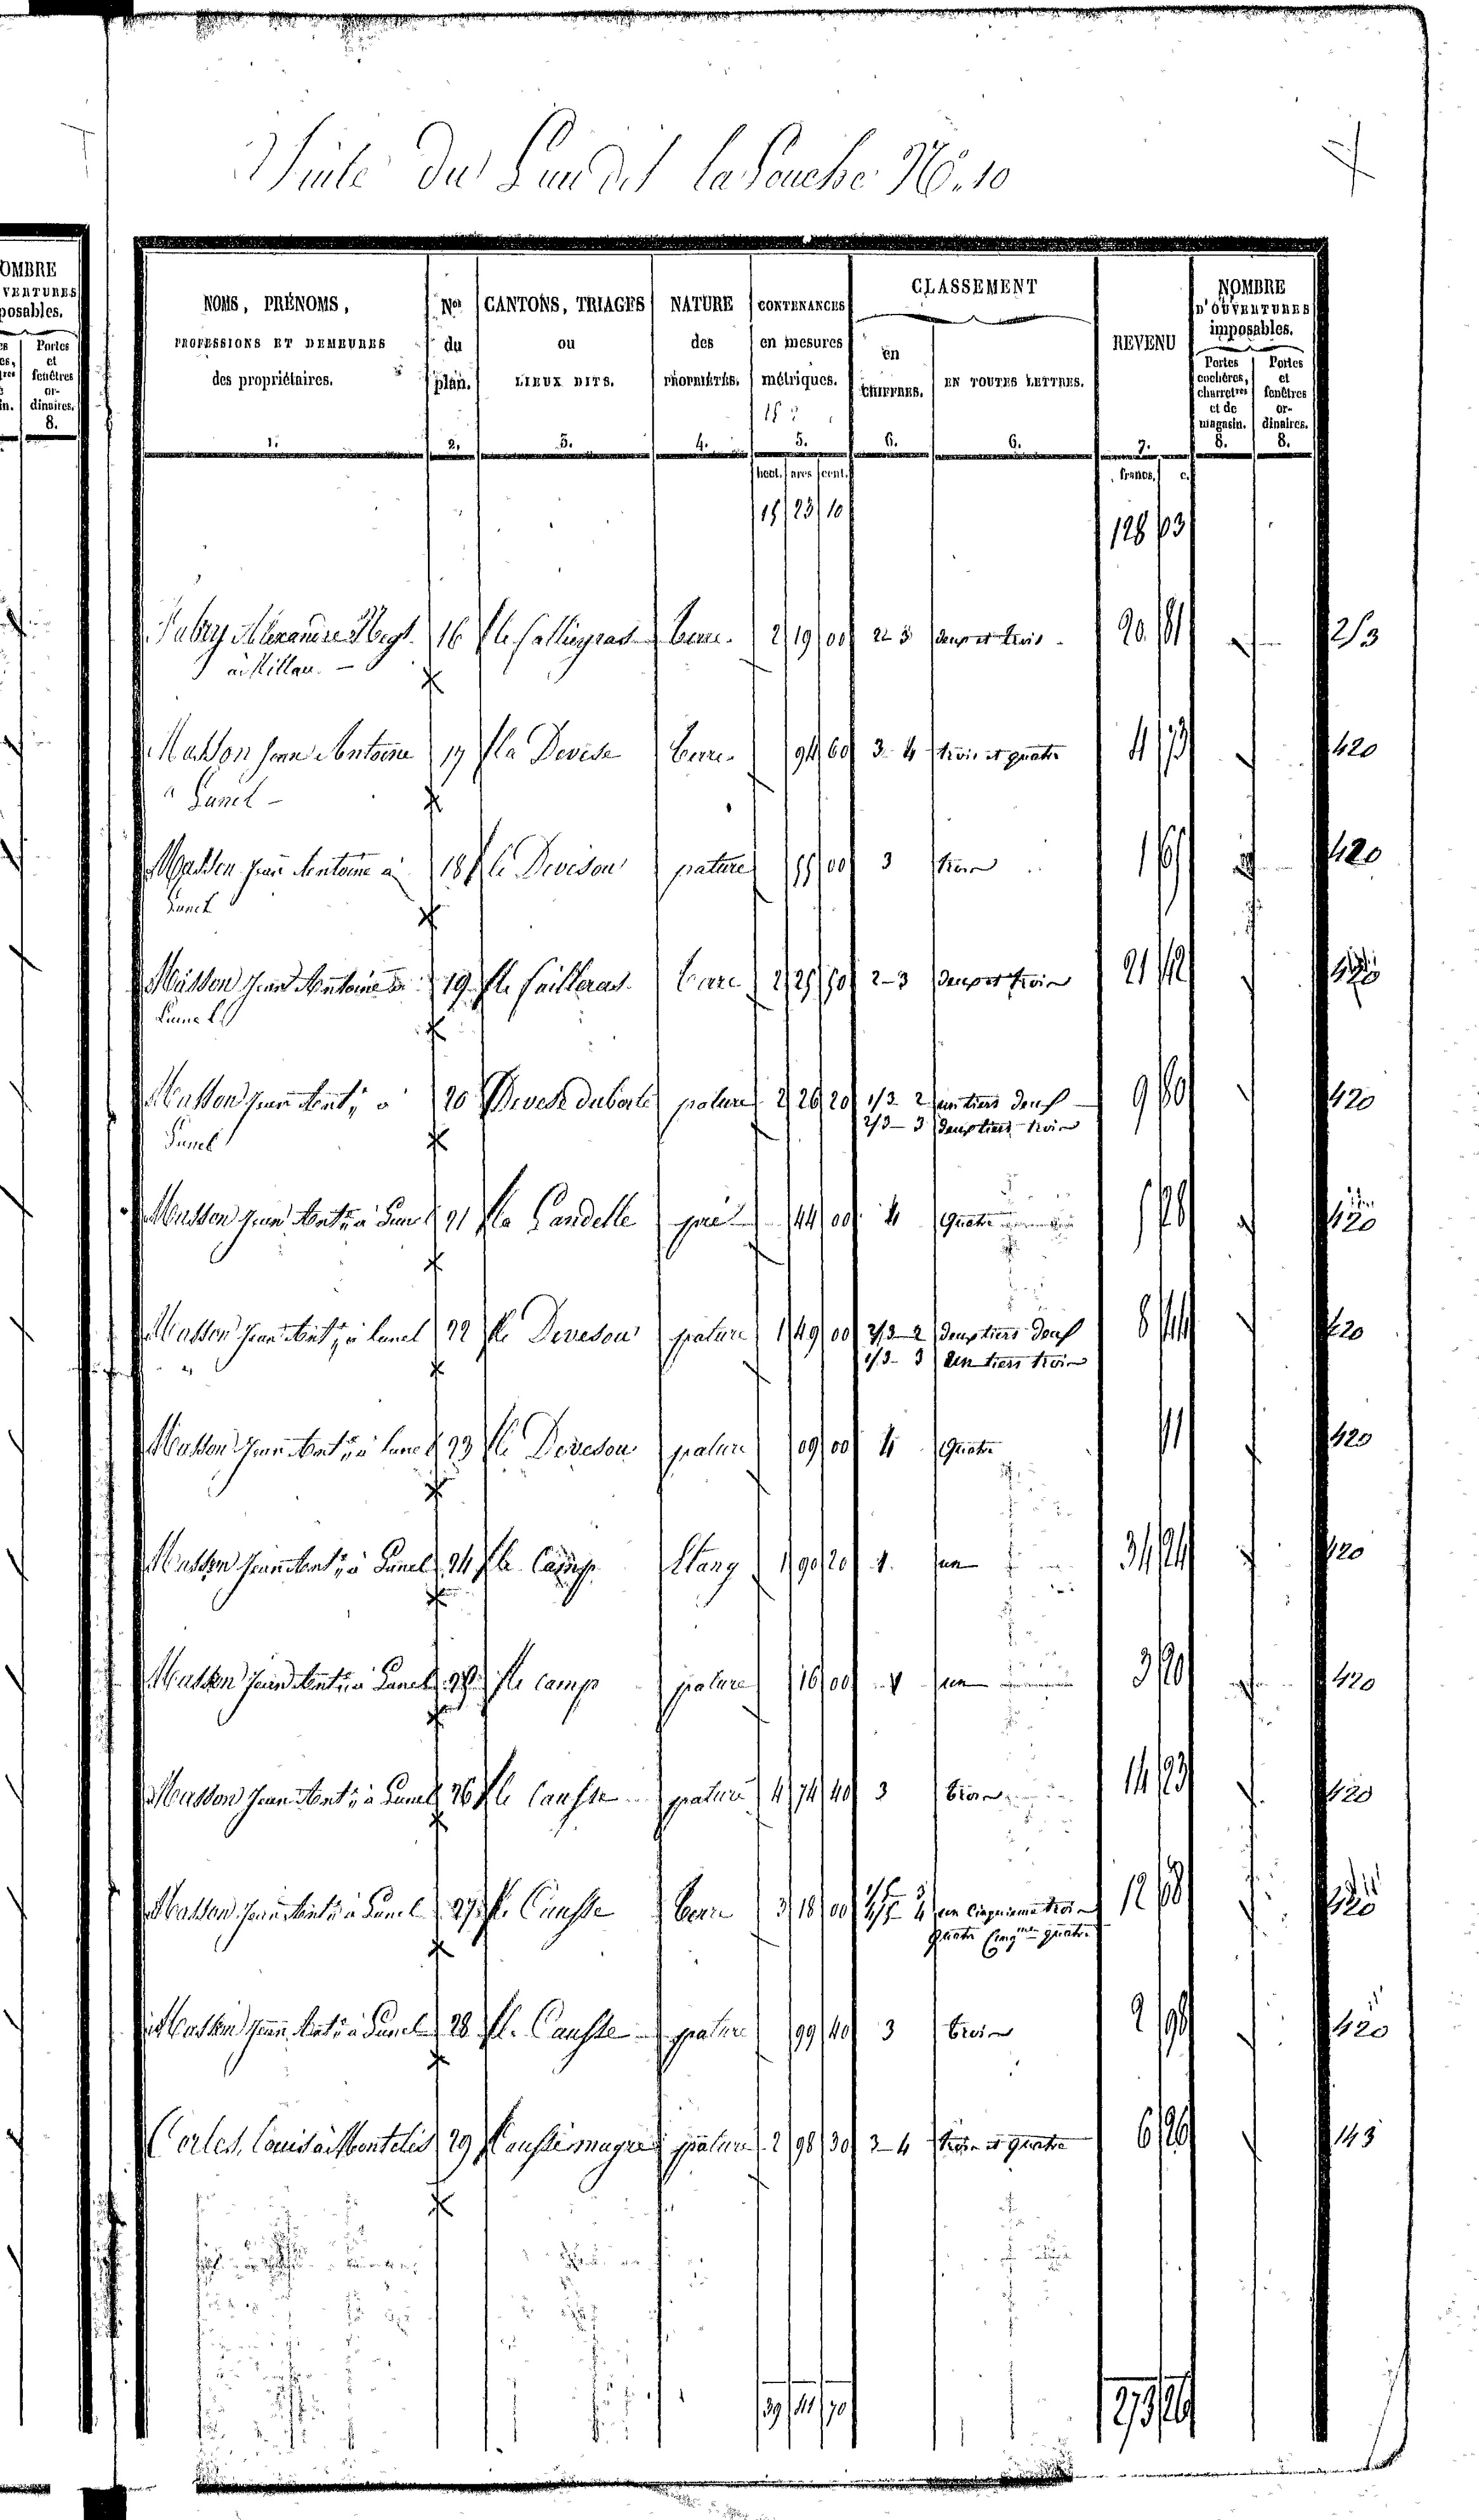 OMBRE
VERTURES
posables.
Portes
et
fenêtres
or-
dinaires.
8.
du dit la Souche No. 10
NOMS, PRÉNOMS,
PROFESSIONS ET DEMEURES
des propriétaires.
1.
Nos
du
plan.
2.
CANTONS, TRIAGES
ou
LIEUX DITS.
3.
NATURE
des
PROPRIÉTÉS.
4.
CONTENANCES
en mesures
métriques.
5.
CLASSEMENT
en
CHIFFRES.
6.
EN TOUTES LETTRES.
6.
REVENU
7.
NOMBRE
D'OUVERTURES
imposables.
Portes
cochères,
charretres
et de
magasin.
8.
Portes
et
fenêtres
or-
dinaires.
8.
hect. ares cent. francs. c.
23 10 128 03
Fabry Alexandre Negt. 16 terre 2 19 00 2 3 deux et trois 20 81 213
à Millau.
Masson Jean Antoine 17 la Devèse terre 94 60 3 4 trois et quatre 4 73 420
à Lunel
Masson Jean Antoine à 18 le Devesou pature 55 00 3 trois 1 65 420
Lunel
Masson Jean Antoine à 19 terre 2 25 50 2-3 deux et trois 21 42 420
Lunel
Masson Jean Ant. à 20 Devèse pature 2 26 20 1/3 2 un tiers deux 9 80 420
Lunel 2/3-3 deux tiers trois
Masson Jean Ant. à Lunel 21 la Candelle pré 44 00 4 Quatre 5 28 420
Masson Jean Ant. à Lunel 22 le Devesou pature 1 49 00 2/3-2 deux tiers deux 8 44 420
1/3-3 un tiers trois
Masson Jean Ant. à Lunel 23 le Devesou pature 09 00 4 Quatre 11 420
Masson Jean Ant. à Lunel 24 le Camp Etang 1 90 20 1 un 34 24 420
Masson Jean Ant. à Lunel 25 le camp pature 16 00 1 un 3 20 420
Masson Jean Ant. à Lunel 26 le Causse pature 4 74 40 3 trois 14 23 420
Masson Jean Ant. à Lunel 27 le Causse terre 3 18 00 1/5 3 un cinquième trois 12 68 420
4/5 4 quatre cinqmes quatre
Masson Jean Ant. à Lunel 28 le Causse pature 99 40 3 trois 2 98 420
Carles Louis à 29 Causse pature 2 98 30 3-4 trois et quatre 6 26 143
39 41 70 273 26